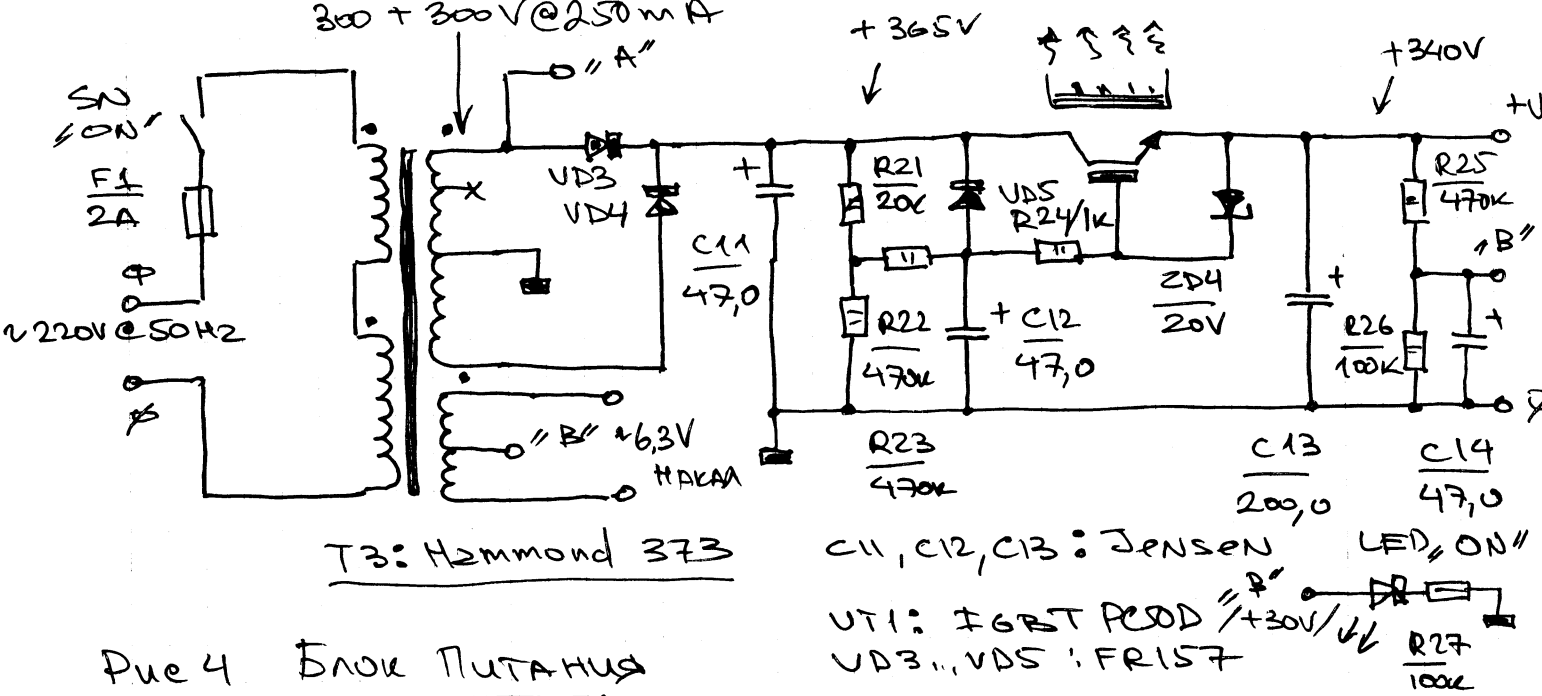 300 + 300V@250mA
"A"
+365V
+340V
SN
"ON"
F1
2A
Ф
~220V@50Hz
+U
VD3
VD4
C11
47,0
+
R21
20K
VD5
R24/1K
R22
470K
+ C12
47,0
ZD4
20V
+
R25
470K
"B"
R26
100K
+
"B" ~6,3V
НАКАЛ
R23
470K
C13
200,0
C14
47,0
T3: Hammond 373
C11, C12, C13 : JENSEN
LED "ON"
"B"
/+30V/
VT1: IGBT
VD3...VD5 : FR157
R27
100K
Рис 4 Блок Питания